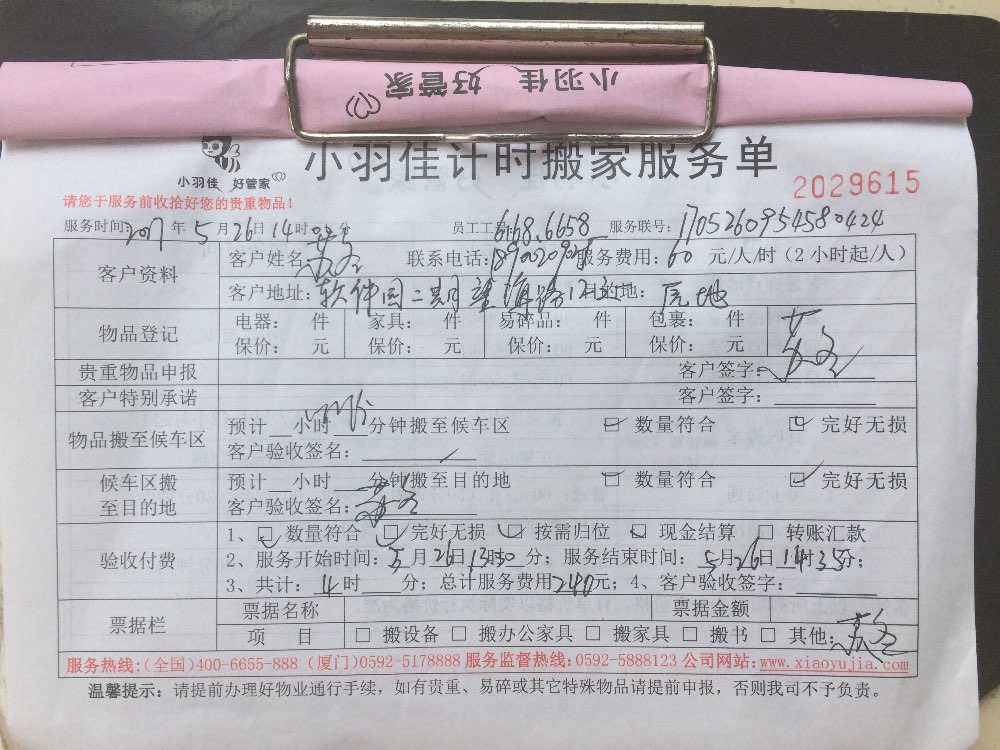 小羽佳 好管家
小羽佳 好管家
小羽佳计时搬家服务单
2029615
请您于服务前收拾好您的贵重物品!
服务时间: 2017年5月26日14时 分 员工工号: 6168.6658 服务联号: 1705260954580424
客户资料 客户姓名: 联系电话: 服务费用: 60 元/人/时(2小时起/人)
客户地址: 软件园二期望海路 目的地:
物品登记 电器: 件 家具: 件 易碎品: 件 包裹: 件
保价: 元 保价: 元 保价: 元 保价: 元
贵重物品申报 客户签字:
客户特别承诺 客户签字:
物品搬至候车区 预计__小时 分钟搬至候车区 数量符合 完好无损
客户验收签名:
候车区搬至目的地 预计__小时 分钟搬至目的地 数量符合 完好无损
客户验收签名:
验收付费 1、 数量符合 完好无损 按需归位 现金结算 转账汇款
2、服务开始时间: 5月26日13时50分; 服务结束时间: 5月26日14时35分;
3、共计: 4时 分; 总计服务费用240元; 4、客户验收签字:
票据栏 票据名称 票据金额
项 目 □ 搬设备 □ 搬办公家具 □ 搬家具 □ 搬书 □ 其他:
服务热线:(全国)400-6655-888 (厦门)0592-5178888 服务监督热线:0592-5888123 公司网站:www.xiaoyujia.com
温馨提示: 请提前办理好物业通行手续, 如有贵重、易碎或其它特殊物品请提前申报, 否则我司不予负责。